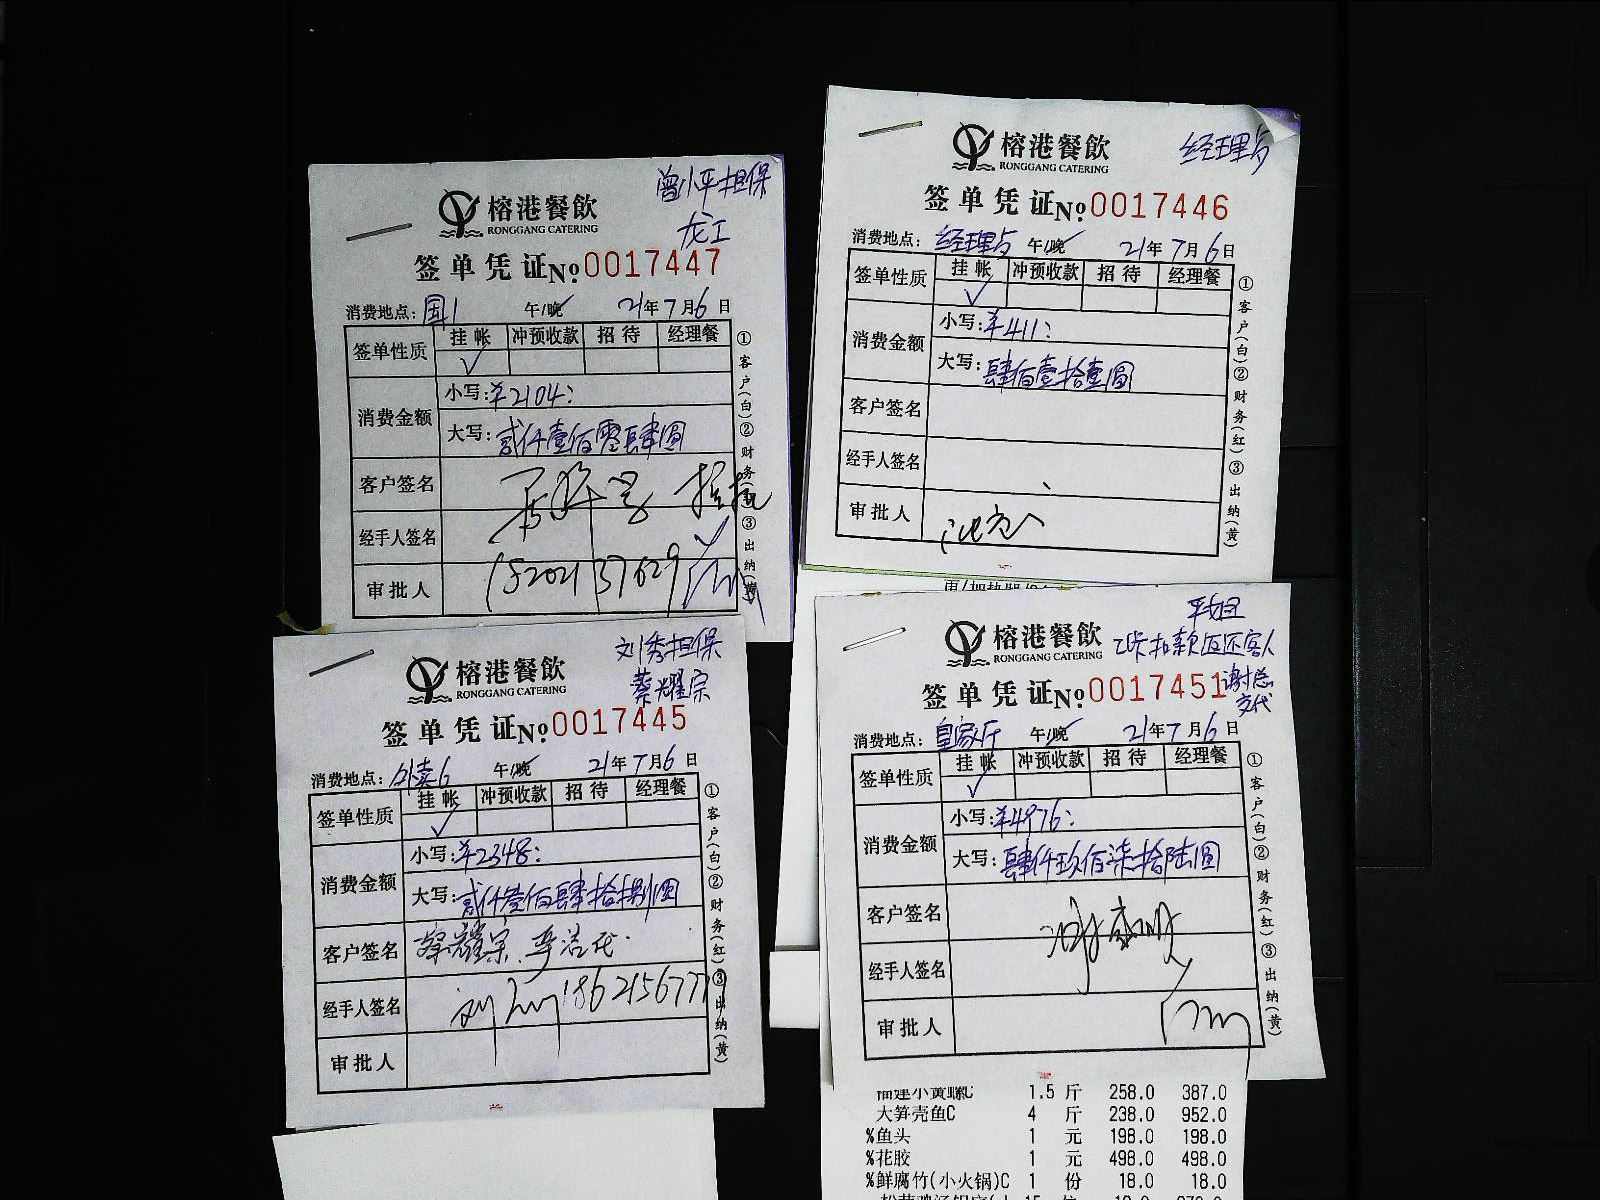 曾小平担保
龙江
榕港餐飲
RONGGANG CATERING
签单凭证№0017447
消费地点: 国1 午/晚 21年7月6日
签单性质 挂帐 冲预收款 招待 经理餐
✓
消费金额 小写:¥2104:
大写:贰仟壹佰零肆圆
客户签名
经手人签名
审批人 15202137629
①客户(白)②财务(红)③出纳(黄)
经理马
榕港餐飲
RONGGANG CATERING
签单凭证№0017446
消费地点: 经理马 午/晚 21年7月6日
签单性质 挂帐 冲预收款 招待 经理餐
✓
消费金额 小写:¥411:
大写:肆佰壹拾壹圆
客户签名
经手人签名
审批人
①客户(白)②财务(红)③出纳(黄)
刘秀担保
蔡耀宗
榕港餐飲
RONGGANG CATERING
签单凭证№0017445
消费地点: 外卖6 午/晚 21年7月6日
签单性质 挂帐 冲预收款 招待 经理餐
✓
消费金额 小写:¥2348:
大写:贰仟壹佰肆拾捌圆
客户签名 蔡耀宗
经手人签名 18621567779
审批人
①客户(白)②财务(红)③出纳(黄)
榕港餐飲
RONGGANG CATERING
扣款返还客人
谢总
交代
签单凭证№0017451
消费地点: 皇家厅 午/晚 21年7月6日
签单性质 挂帐 冲预收款 招待 经理餐
✓
消费金额 小写:¥4976:
大写:肆仟玖佰柒拾陆圆
客户签名
经手人签名
审批人
①客户(白)②财务(红)③出纳(黄)
福建小黄螺C 1.5 斤 258.0 387.0
大笋壳鱼C 4 斤 238.0 952.0
%鱼头 1 元 198.0 198.0
%花胶 1 元 498.0 498.0
%鲜腐竹(小火锅)C 1 份 18.0 18.0